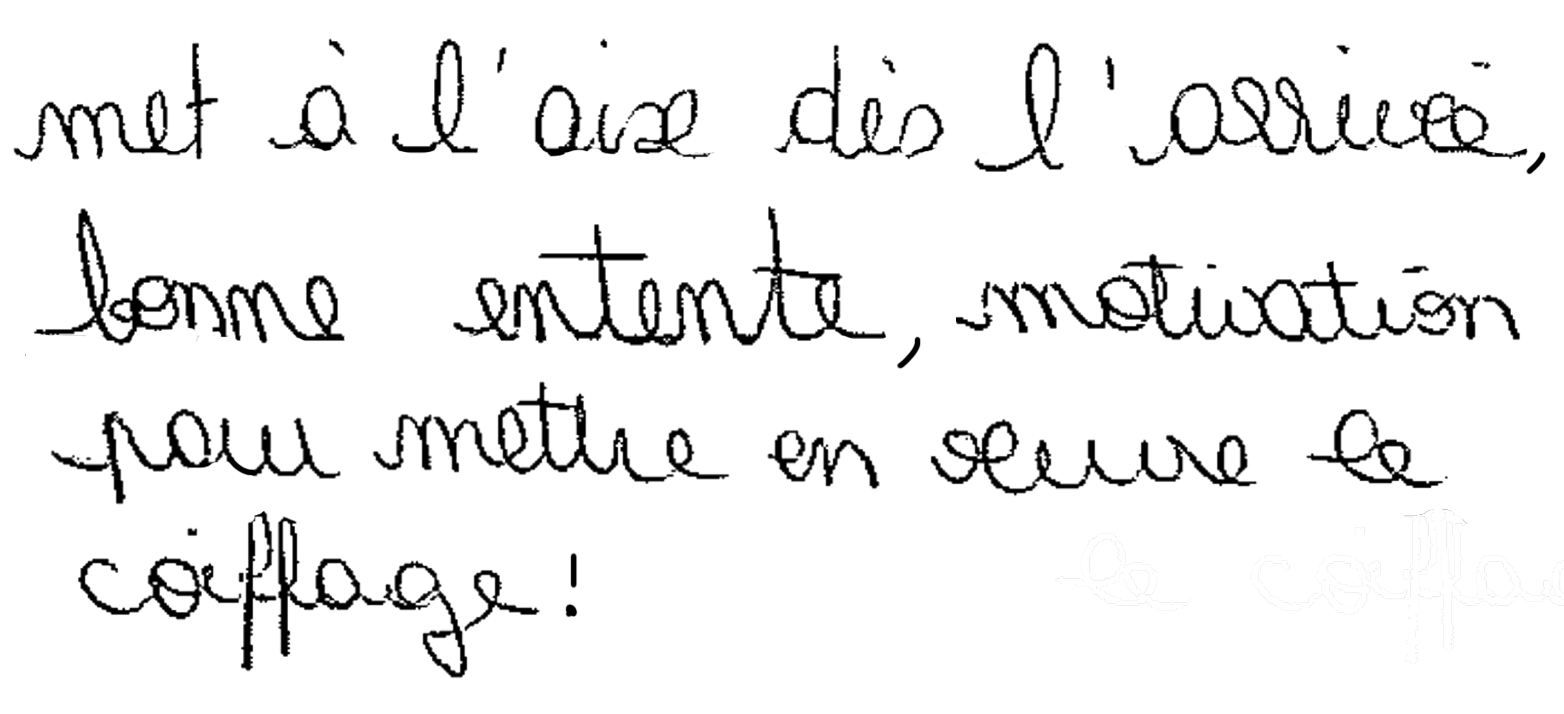 met à l'aise dès l'arrivé,
bonne entente, motivation
pour mettre en œuvre le
coiffage !